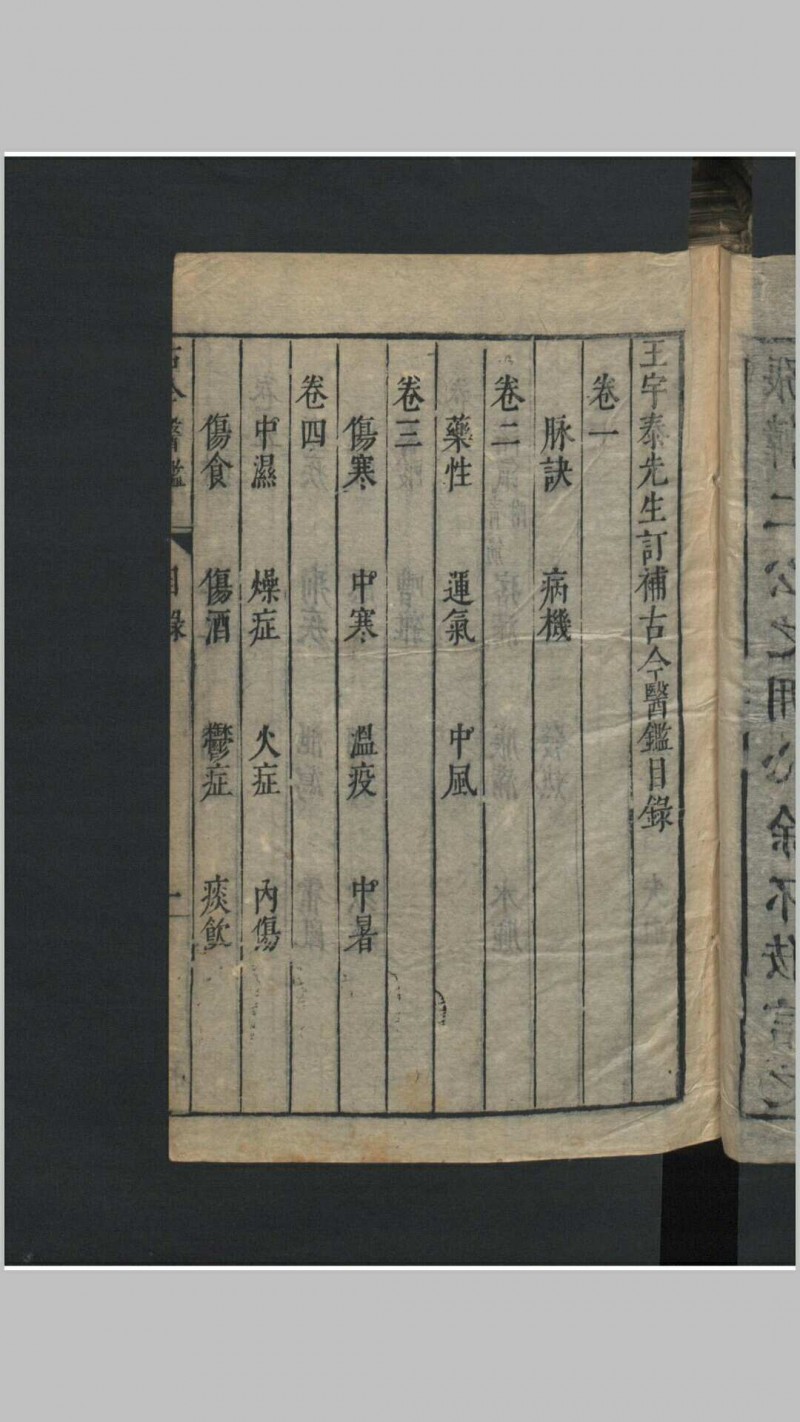 王宇泰先生訂補古今醫鑑目錄
卷一
脉訣 病機
卷二
藥性 運氣 中風
卷三
傷寒 中寒 溫疫 中暑
卷四
中濕 燥症 火症 內傷
傷食 傷酒 鬱症 痰飲
古今醫鑑 目錄 一